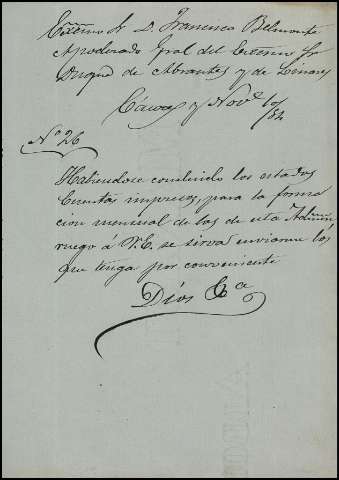 Exmo Sr D. Francisco Belmonte
Apoderado Gral del Excmo Sr
Duque de Abrantes y de Linares
Cáceres y Nove 10/84
No 26
Habiendose concluido los estados
Cuentas impresos, para la forma
cion mensual de las de esta Admon
ruego á V.E. se sirva enviarme los
que tenga por conveniente
Dios &a